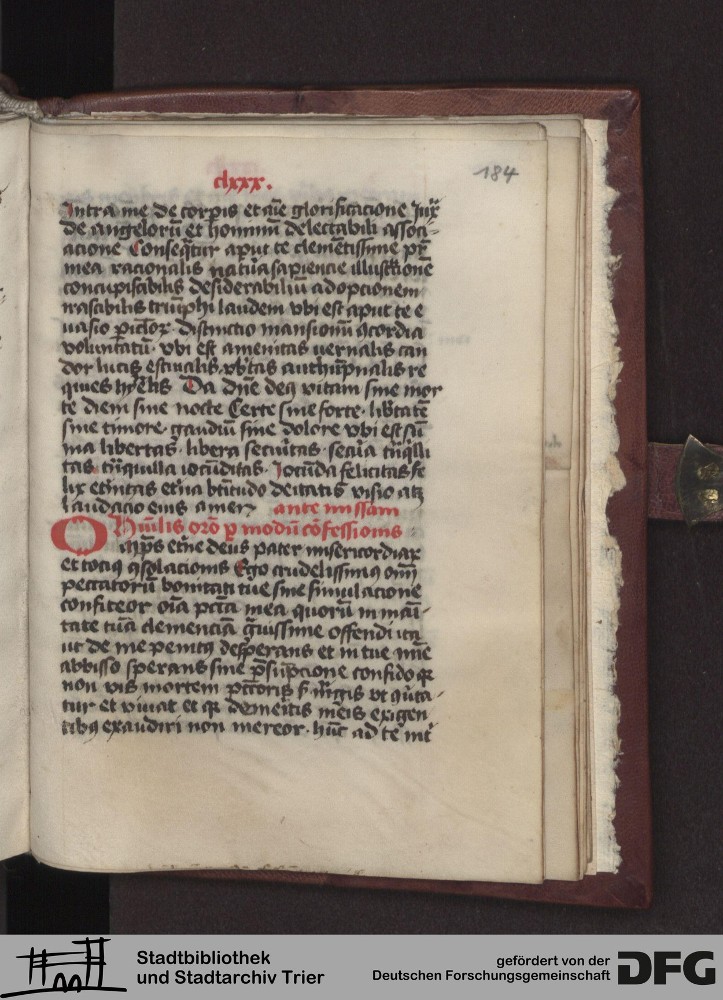 clxxx.
184
Intra me de corp̄is et aīe glorificacione Iux̄
de angelorū et hominum delectabili assoc̄i-
acione Conseq̄tur aput te clemētissime pr̄
mea racionalis natura sapiencie
concupiscibilis desiderabiliū adopcionem
irascibilis triūphi laudem vbi est aput te e
uasio distinctio mansionū ꝯcordia
voluntatū· vbi est amenitas uernalis can
dor lucis estiualis. vb̄tas authūpnalis re
quies Da dn̄e deꝰ vitam sine mor
te diem sine nocte Certe sine forte· lib̄tatē
sine timore· gaudiū sine dolore vbi est sū
ma libertas· libera secur̄tas· secura
tas iocūditas· Iocūda felicitas fe
lix et̄nitas et̄na btītudo deitatis visio atꝫ
laudacio eius amen ante missam
Hūilis or̄o ꝑ modū cōfessionis
O et̄ne deus pater misericordiaꝝ
et tociꝰ ꝯsolacionis Ego crudelissimꝰ om̄
peccatorū bonitati tue sine simulacione
confiteor oīa pctā mea quorū in māī-
tate tuā clemenciā gͣuissime offendi ita
ut de me penitꝰ desꝑans et in tue mīe
abbisso sperans sine p̄sūpcione confido qꝛ
non vis mortem pctōris sꝫ mͣgis vt ꝯūta-
tur et viuat et qꝛ demeritis meis exigen
tibꝰ exaudiri non mereor· hūc ad te mī
Stadtbibliothek
und Stadtarchiv Trier
gefördert von der
Deutschen Forschungsgemeinschaft
DFG